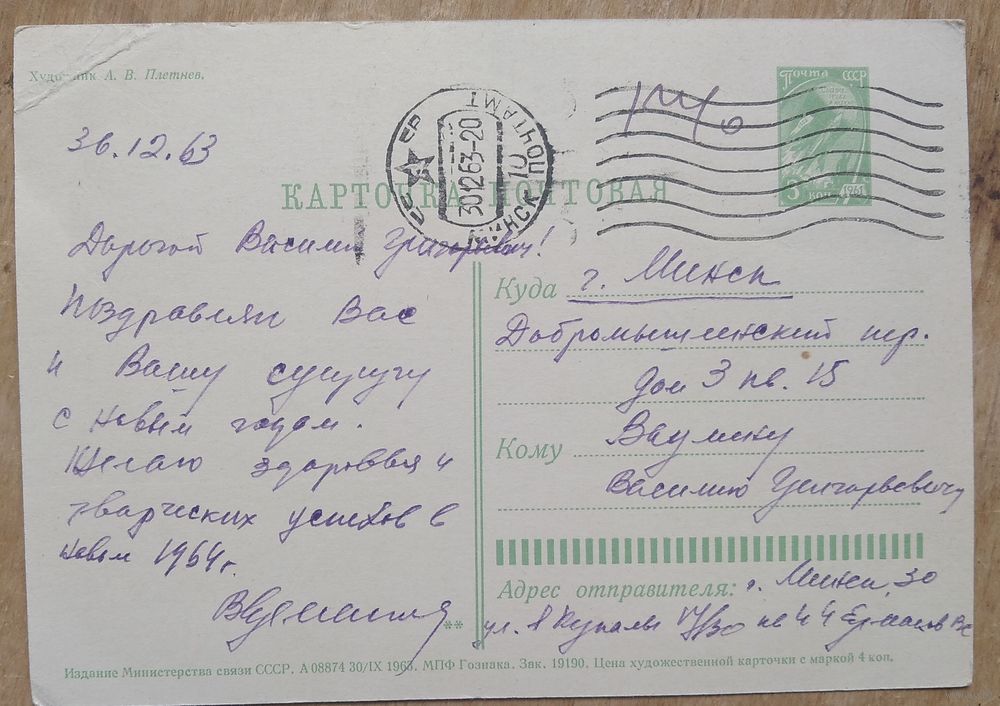 Художник А. В. Плетнев.
30.12.63
КАРТОЧКА ПОЧТОВАЯ
ПОЧТА СССР
3 КОП. 1961
МИНСК 10 ПОЧТАМТ
30 12 63-20
Дорогой Василий Григорьевич!
Поздравляю Вас
и Вашу супругу
с Новым годом.
Желаю здоровья и
творческих успехов в
Новом 1964 г.
Куда г. Минск
Добромыслинский пер.
дом 3 кв. 15
Кому Ваулину
Василию Григорьевичу
Адрес отправителя: г. Минск, 30
ул. Я Купалы кв 44
**
Издание Министерства связи СССР. А 08874 30/IX 1963. МПФ Гознака. Зак. 19190. Цена художественной карточки с маркой 4 коп.